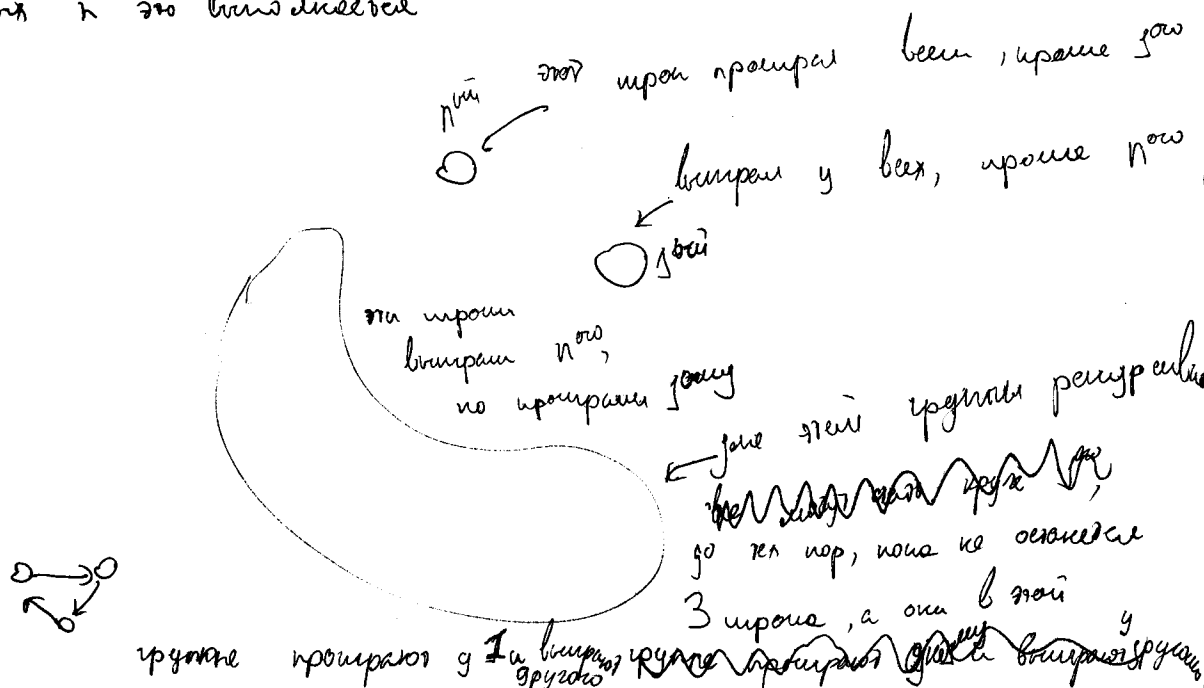 n это выполняется
nый этот игрок проиграл всем, кроме 1ого
выиграл у всех, кроме nого
1ый
эти игроки
выиграли nого,
но проиграли 1ому
для этой группы
до тех пор, пока не останется
3 игрока, а они в этой
группе проиграют у 1 и выиграют
другого